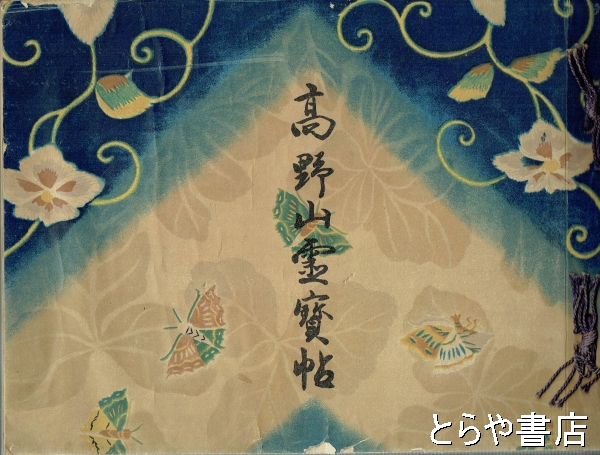 高野山靈寶帖
とらや書店